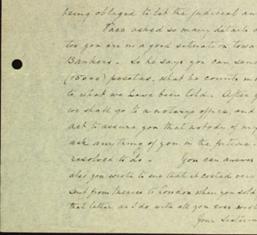 being obliged to let the judicial an
Paco asked so many details a
too you are in a good situation towa
Bankers. So he says you can send
(15000) pesetas, what he counts
to what we have been told. After
we shall go to a notary's office, and
act to assure you that nobody of my
ask anything of you in the future
resolved to do. You can answer
also you wrote to me that it costed very
sent from Mexico to London when you sold
that letter as I do with all you ever
Your Sister